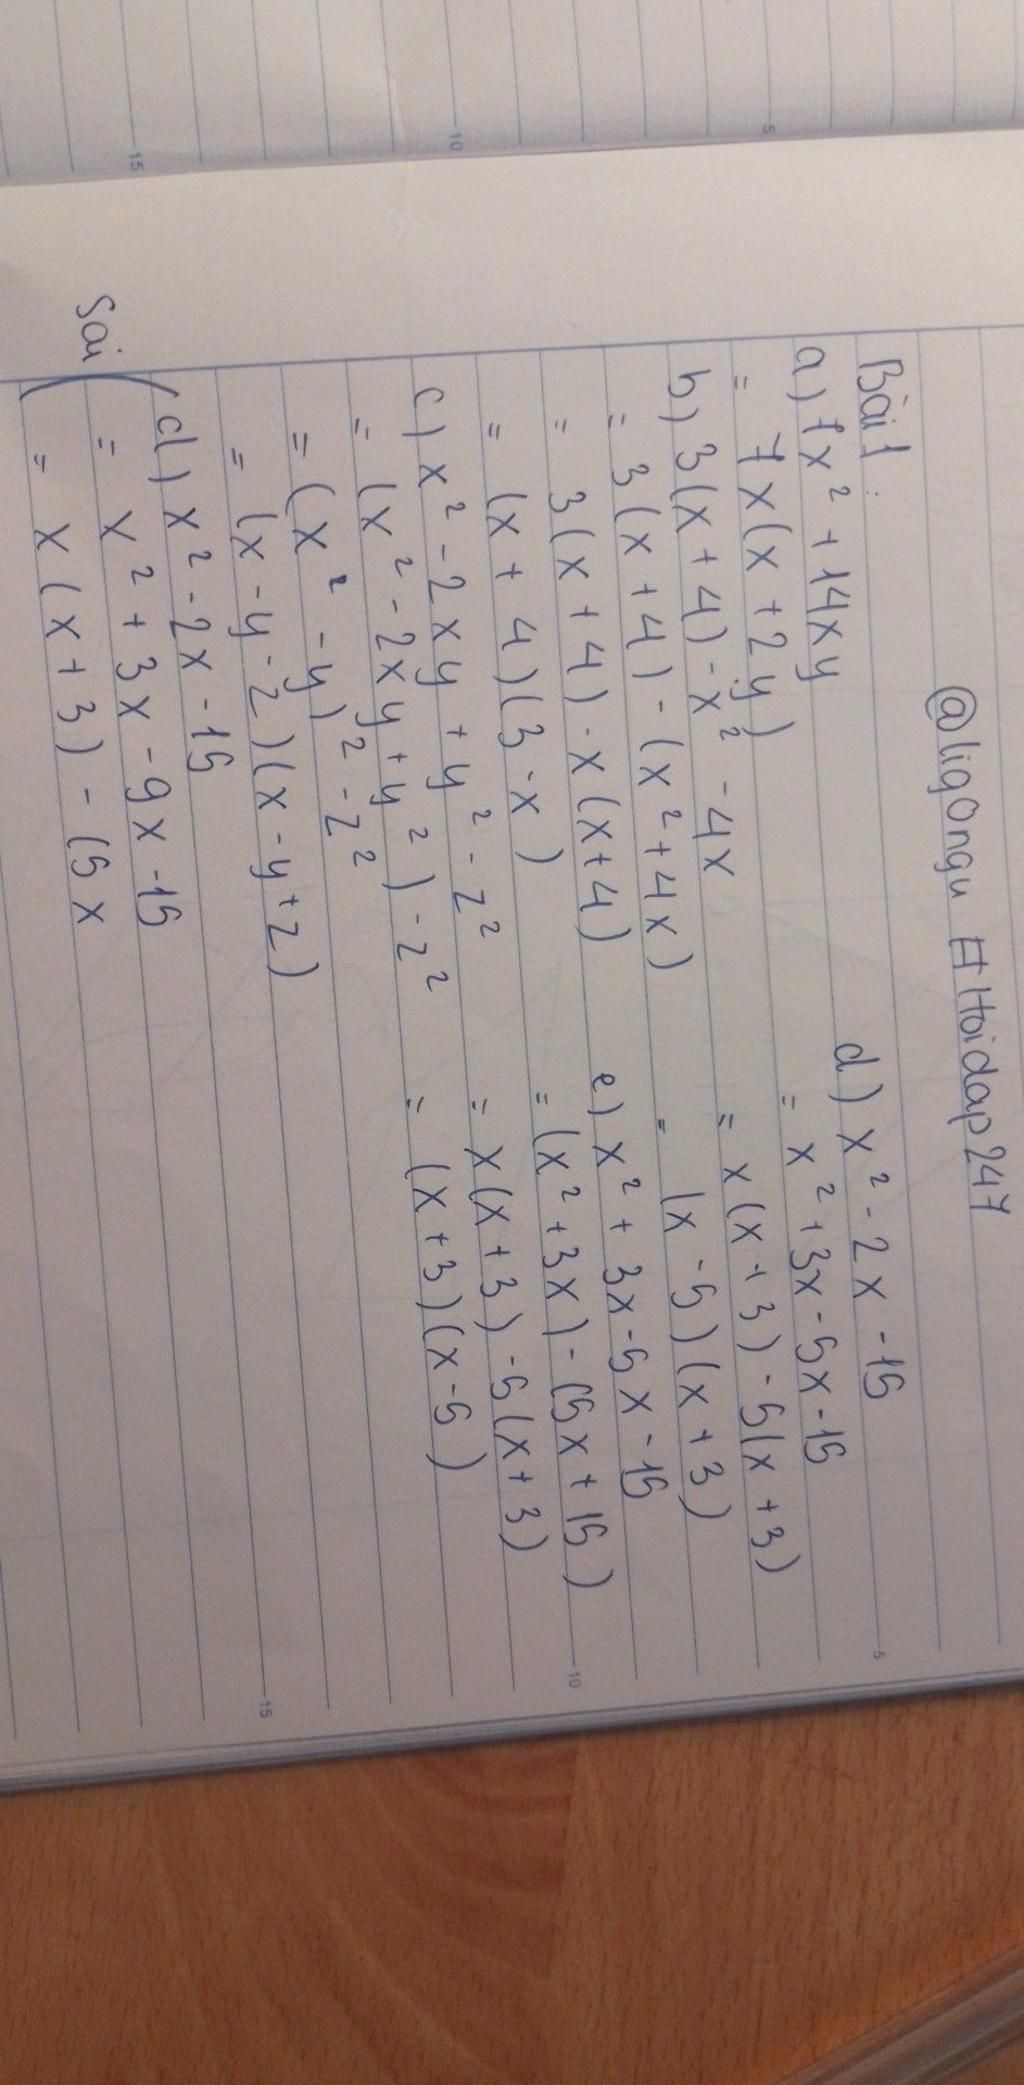 @lig0ngu #Hoidap247
Bài 1:
a) 7x² + 14xy
= 7x(x + 2y)
b) 3(x + 4) - x² - 4x
= 3(x + 4) - (x² + 4x)
= 3(x + 4) - x(x + 4)
= (x + 4)(3 - x)
c) x² - 2xy + y² - z²
= (x² - 2xy + y²) - z²
= (x² - y)² - z²
= (x - y - z)(x - y + z)
Sai
d) x² - 2x - 15
= x² + 3x - 9x - 15
= x(x + 3) - (5x
d) x² - 2x - 15
= x² + 3x - 5x - 15
= x(x + 3) - 5(x + 3)
= (x - 5)(x + 3)
e) x² + 3x - 5x - 15
= (x² + 3x) - (5x + 15)
= x(x + 3) - 5(x + 3)
= (x + 3)(x - 5)
5
10
15
5
10
15